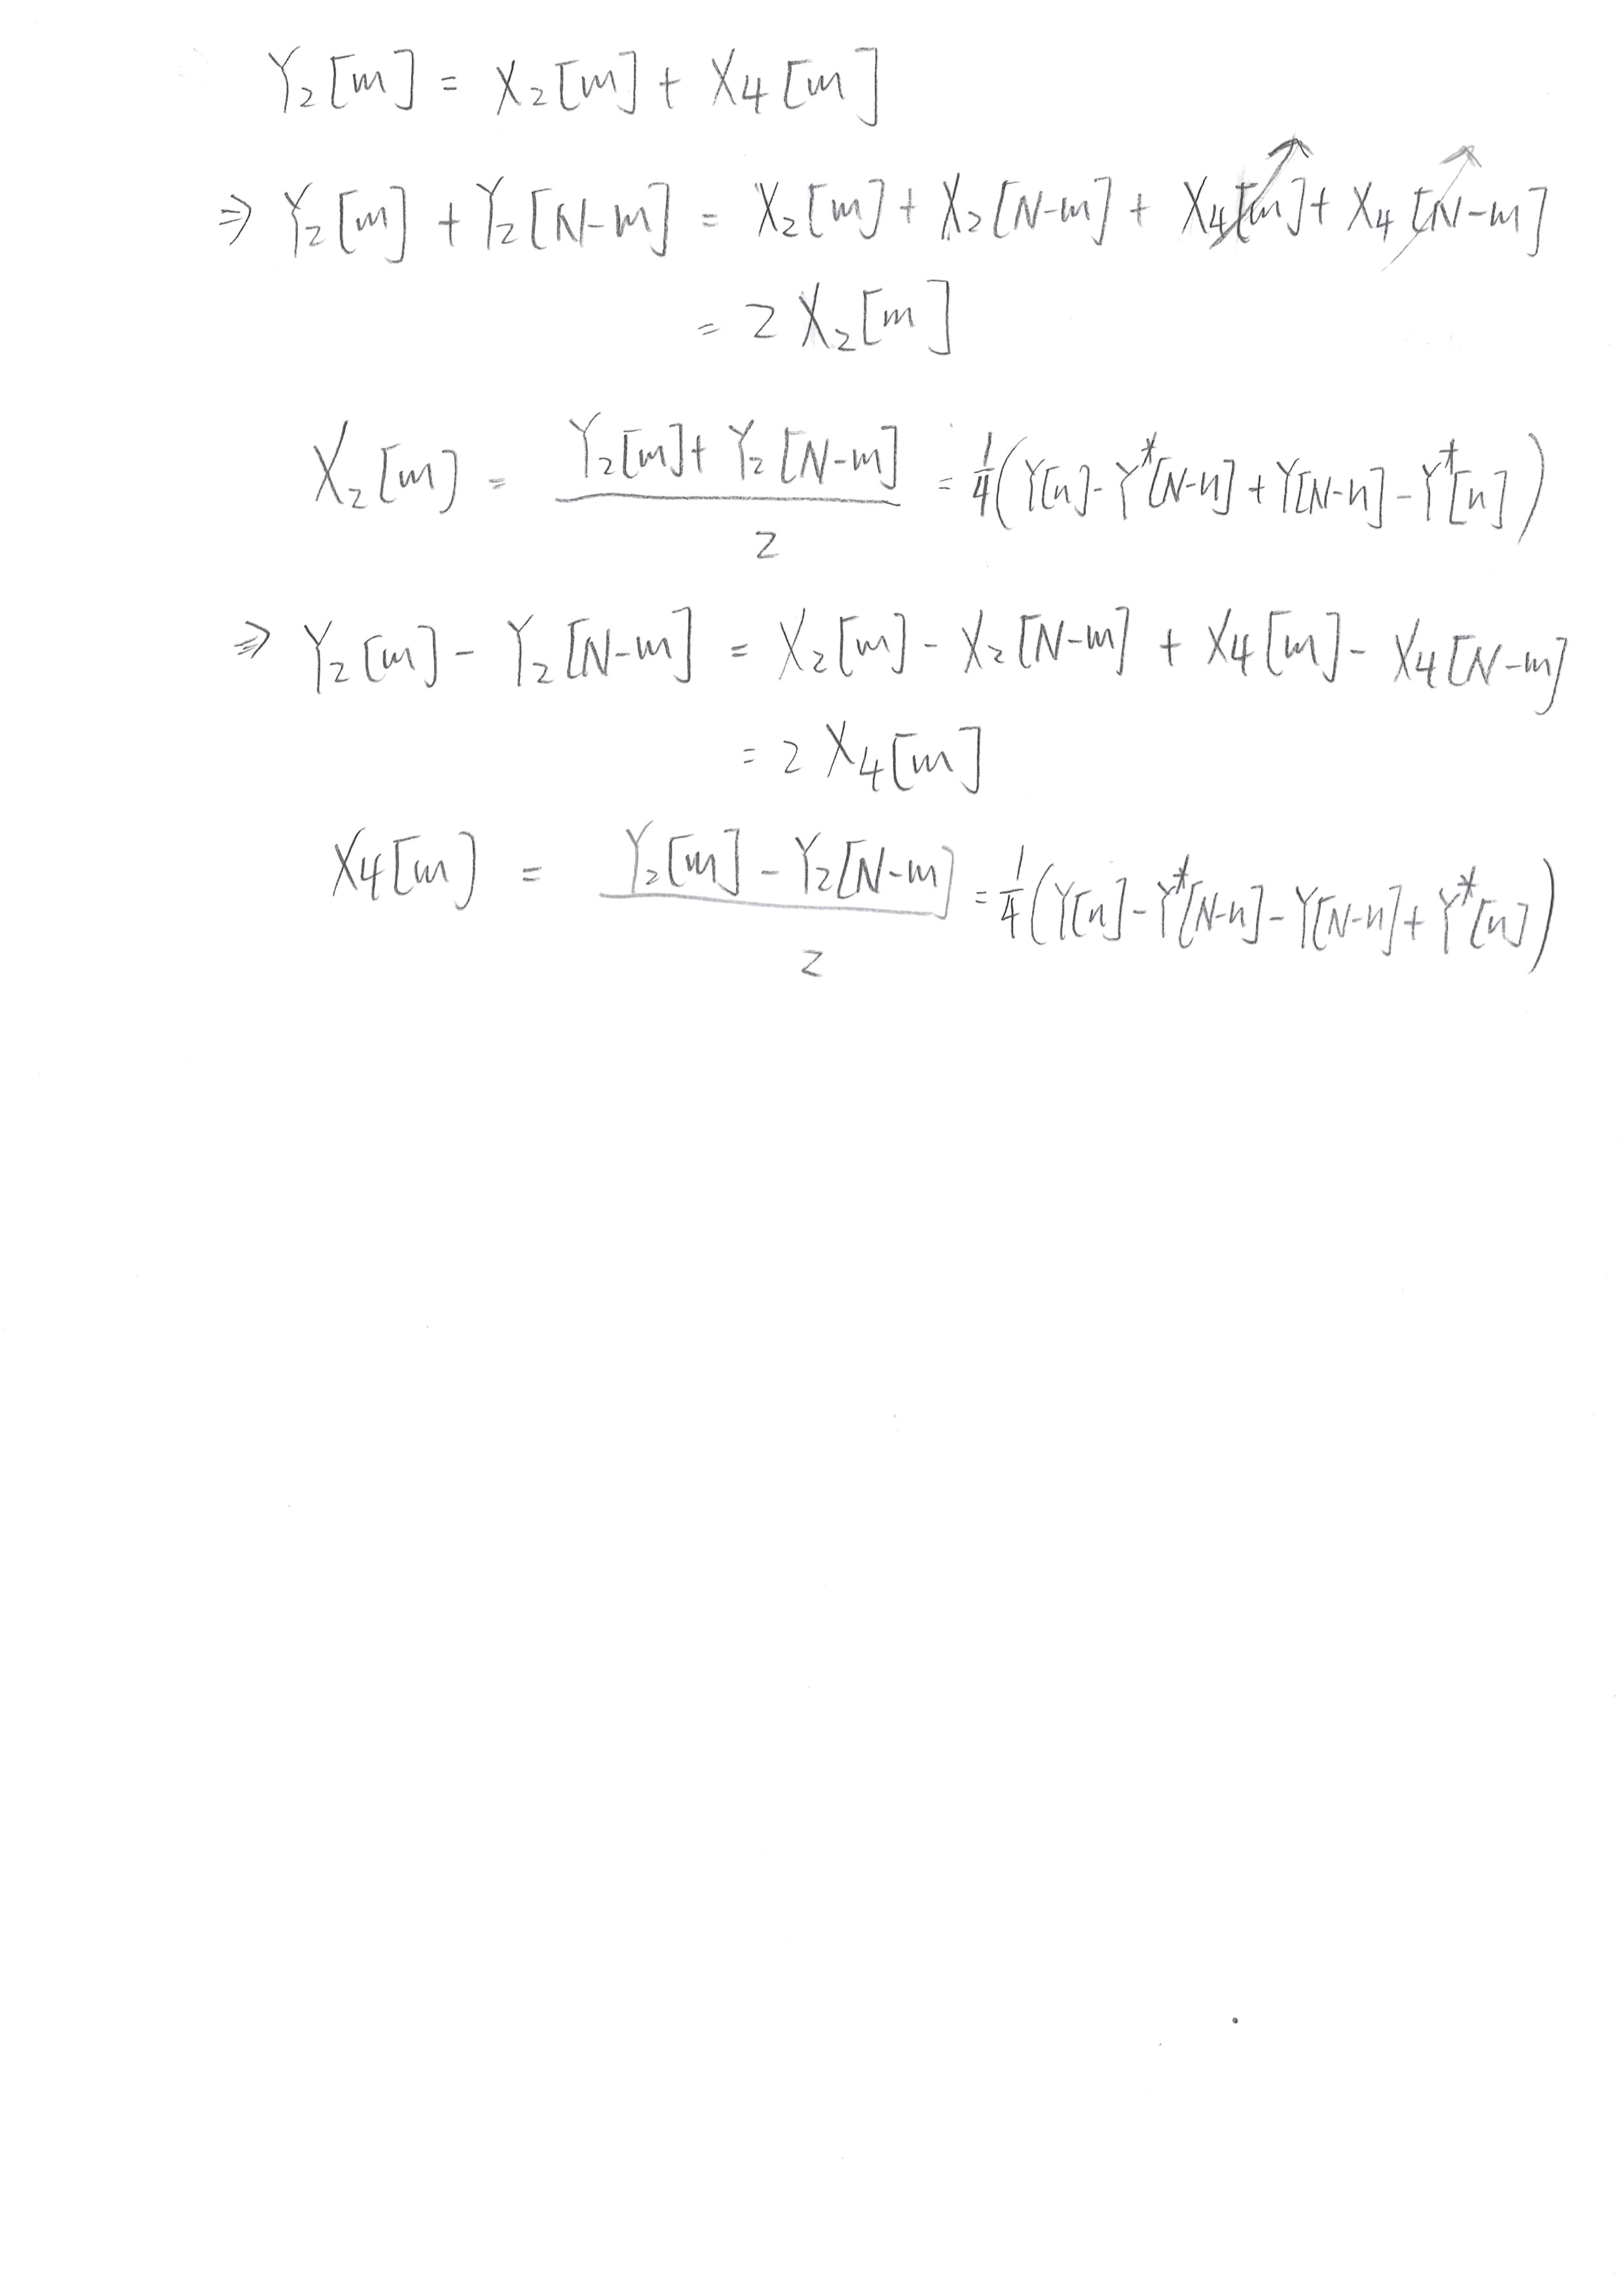 Y₂[m] = X₂[m] + X₄[m]
⇒ Y₂[m] + Y₂[N-m] = X₂[m] + X₂[N-m] + X₄[m] + X₄[N-m]
= 2 X₂[m]
X₂[m] = (Y₂[m] + Y₂[N-m]) / 2 = 1/4 (Y[n] - Y*[N-n] + Y[N-n] - Y*[n])
⇒ Y₂[m] - Y₂[N-m] = X₂[m] - X₂[N-m] + X₄[m] - X₄[N-m]
= 2 X₄[m]
X₄[m] = (Y₂[m] - Y₂[N-m]) / 2 = 1/4 (Y[n] - Y*[N-n] - Y[N-n] + Y*[n])